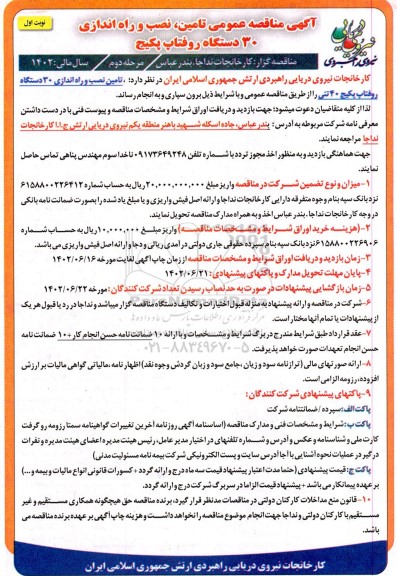 نوبت اول
آگهی مناقصه عمومی تامین، نصب و راه اندازی
۳۰ دستگاه روفتاپ پکیج
نیروی دریایی راهبردی
مناقصه گزار: کارخانجات نداجا، بندرعباس مرحله دوم سال مالی: ۱۴۰۲
کارخانجات نیروی دریایی راهبردی ارتش جمهوری اسلامی ایران در نظر دارد؛ «تامین نصب و راه اندازی ۳۰ دستگاه
روفتاپ پکیج ۴۰ تنی» را از طریق مناقصه عمومی و با شرایط ذیل برون سپاری و به انجام رساند.
لذا از کلیه متقاضیان دعوت میشود؛ جهت بازدید و دریافت اوراق شرایط و مشخصات مناقصه و پیوست فنی با در دست داشتن
معرفی نامه شرکت مربوطه به آدرس: بندرعباس، جاده اسکله شهید باهنر منطقه یکم نیروی دریایی ارتش ج.ا.ا کارخانجات
نداجا مراجعه نمایند.
جهت هماهنگی بازدید و به منظور اخذ مجوز تردد با شماره تلفن ۰۹۱۷۳۶۴۹۲۴۸ ناخدا سوم مهندس پناهی تماس حاصل
نمایند.
۱-میزان و نوع تضمین شرکت در مناقصه واریز مبلغ ۲۰,۰۰۰,۰۰۰,۰۰۰ ریال به حساب شماره ۶۱۵۸۸۰۰۲۲۶۴۱۲
نزد بانک سپه بنام وجوه متفرقه دارایی کارخانجات نداجا و ارائه اصل فیش واریزی و یا مبلغ یاد شده را بصورت ضمانت نامه بانکی
در وجه کارخانجات نداجا، بندرعباس اخذ و به همراه مدارک مناقصه تحویل نمایند.
۲-(هزینه خرید اوراق شرایط و مشخصات مناقصه) واریز مبلغ ۱۰,۰۰۰,۰۰۰ ریال به حساب شماره
۶۱۵۸۸۰۰۲۲۶۹۰۶ نزد بانک سپه بنام سپرده حقوقی جاری دولتی درآمدی ریالی ودجا و ارائه اصل فیش واریزی می باشد.
۳-زمان بازدید و دریافت اوراق شرایط و مشخصات مناقصه از زمان چاپ آگهی لغایت مورخه ۱۴۰۲/۰۶/۱۶
۴-پایان مهلت تحویل مدارک و پاکتهای پیشنهادی: ۱۴۰۲/۰۶/۲۱
۵-زمان بازگشایی پیشنهادات در صورت به حد نصاب رسیدن تعداد شرکت کنندگان: مورخه ۱۴۰۲/۰۶/۲۲
۶-شرکت در مناقصه و ارائه پیشنهاد به منزله قبول اختیارات و تکالیف دستگاه مناقصه گزار میباشد و نداجا در رد یا قبول هر یک
از پیشنهادات یا تمام آنها مختار است.
۷-عقد قرارداد طبق شرایط مندرج در برگ شرایط و مشخصات و با ارائه ۱۰٪ ضمانت نامه حسن انجام کار و ۱۰٪ ضمانت نامه
حسن انجام تعهدات صورت خواهد پذیرفت.
۰۲۱-۸۸۳۴۹۶۷۰-۵
۸-ارائه صورتهای مالی (ترازنامه سود و زیان، جامع سود و زیان گردش وجوه نقد) اظهارنامه، مالیاتی گواهی مالیات بر ارزش
افزوده، رزومه الزامی است.
۹-پاکتهای پیشنهادی شرکت کنندگان:
پاکت الف: سپرده / ضمانتنامه شرکت
پاکت ب: شرایط و مشخصات فنی و مدارک مناقصه (اساسنامه آگهی روزنامه آخرین تغییرات گواهینامه سمتا رزومه رو گرفت
کارت ملی و شناسنامه و عکس و آدرس و شماره تلفنهای در اختیار مدیرعامل، رئیس هیئت مدیره اعضای هیئت مدیره و نفرات
درگیر در عملیات نحوه آشنایی با آجا آدرس سایت و پست الکترونیکی شرکت بیمه نامه مسئولیت مدنی)
پاکت ج: قیمت پیشنهادی (حتما مدت اعتبار پیشنهاد قیمت سه ماه درج و ارائه گردد + کسورات قانونی انواع مالیات و بیمه و ...)
بر عهده پیمانکار می باشد + پیشنهاد قیمت الزاما در سربرگ شرکت درج و ارائه گردد.
۱۰-قانون منع مداخلات کارکنان دولتی در مناقصات مدنظر قرار گیرد. برنده مناقصه حق هیچگونه همکاری مستقیم و غیر
مستقیم با کارکنان دولتی و نداجا جهت انجام موضوع مناقصه را نخواهد داشت و هزینه چاپ آگهی بر عهده برنده مناقصه می
باشد.
کارخانجات نیروی دریایی راهبردی ارتش جمهوری اسلامی ایران